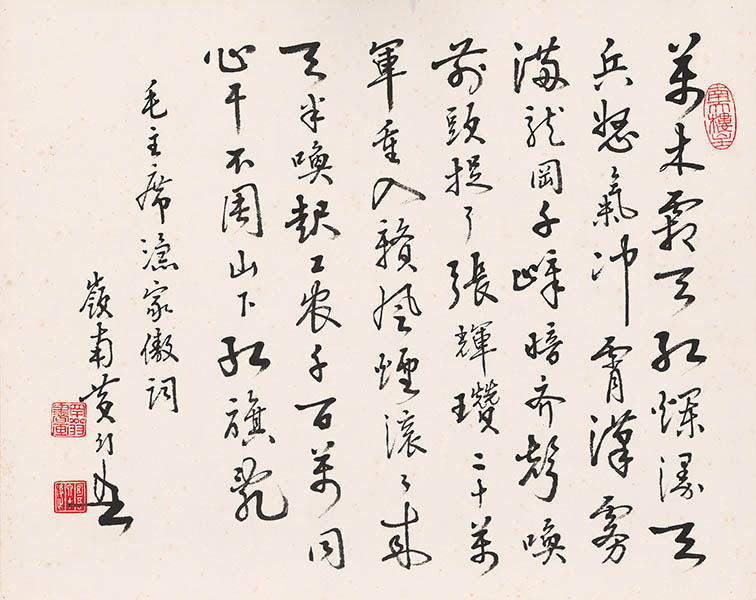 萬木霜天紅爛漫天
兵怒氣冲霄漢霧
滿龍岡千嶂暗齊聲喚
前頭捉了張輝瓚二十萬
軍重入贛風煙滾々來
天半喚起工農千百萬同
心干不周山下紅旗亂
毛主席漁家傲詞
嶺南黃